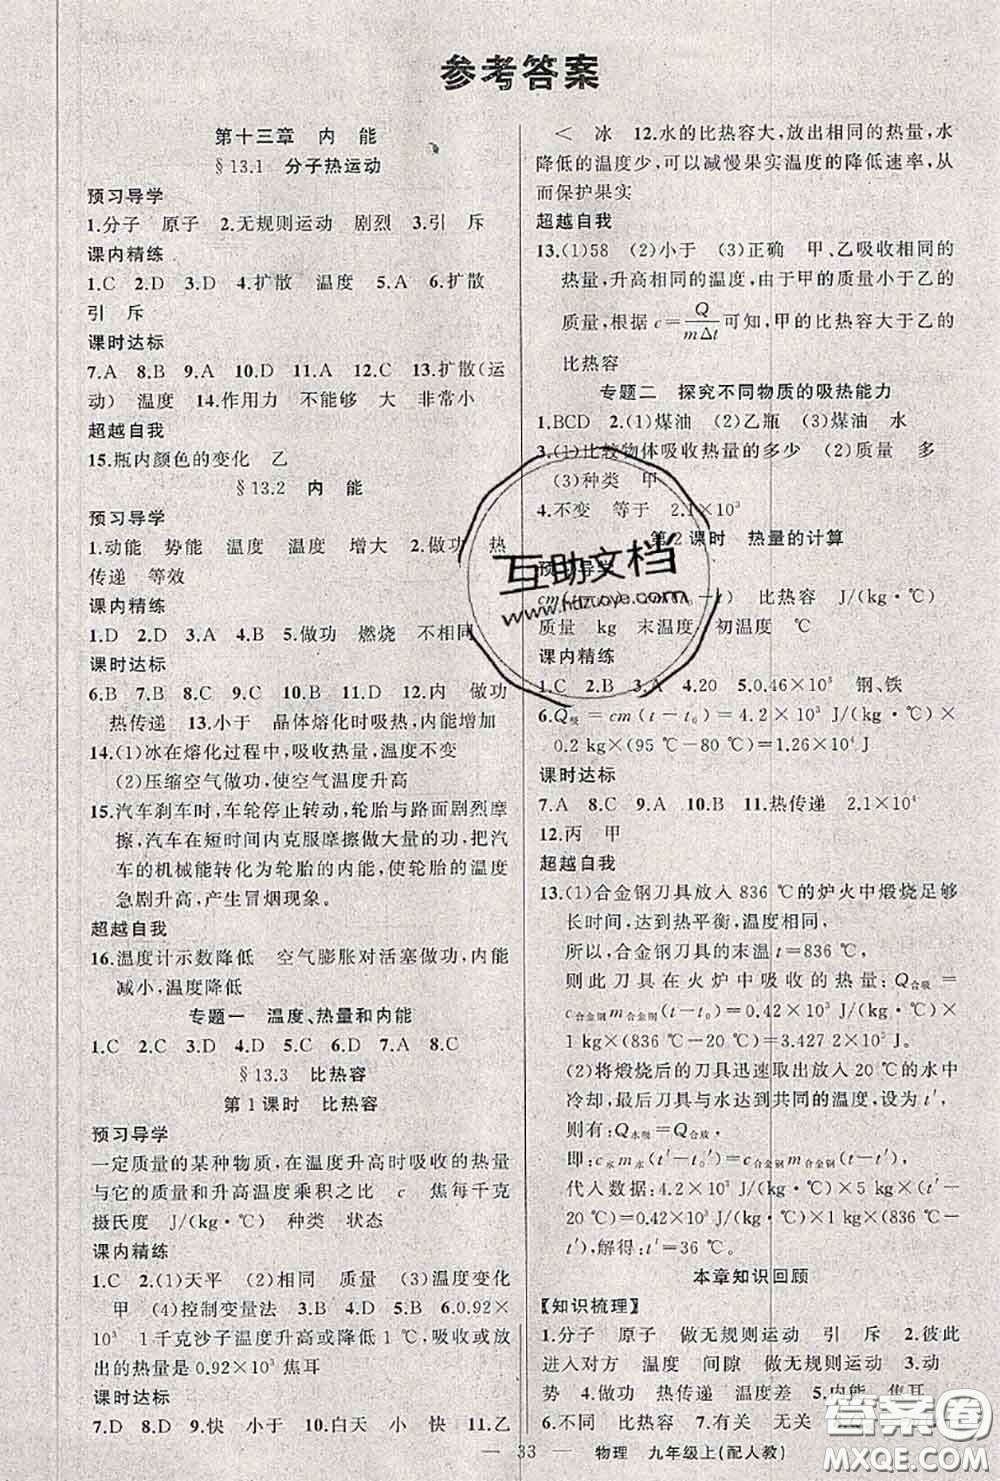 参考答案
第十三章　内　能
§13.1　分子热运动
预习导学
1.分子　原子　2.无规则运动　剧烈　3.引　斥
课内精练
1.C　2.D　3.D　4.扩散　温度　5.A　6.扩散
引　斥
课时达标
7.A　8.B　9.A　10.D　11.A　12.C　13.扩散(运
动)　温度　14.作用力　不能够　大　非常小
超越自我
15.瓶内颜色的变化　乙
§13.2　内　能
预习导学
1.动能　势能　温度　温度　增大　2.做功　热
传递　等效
课内精练
1.D　2.D　3.D　4.B　5.做功　燃烧　不相同
课时达标
6.B　7.B　8.C　9.C　10.B　11.C　12.内　做功
热传递　13.小于　晶体熔化时吸热,内能增加
14.(1)冰在熔化过程中,吸收热量,温度不变
(2)压缩空气做功,使空气温度升高
15.汽车刹车时,车轮停止转动,轮胎与路面剧烈摩
擦,汽车在短时间内克服摩擦做大量的功,把汽
车的机械能转化为轮胎的内能,使轮胎的温度
急剧升高,产生冒烟现象。
超越自我
16.温度计示数降低　空气膨胀对活塞做功,内能
减小,温度降低
专题一　温度、热量和内能
1.C　2.C　3.D　4.B　5.D　6.D　7.A　8.C
§13.3　比热容
第1课时　比热容
预习导学
一定质量的某种物质,在温度升高时吸收的热量
与它的质量和升高温度乘积之比　c　焦每千克
摄氏度　J/(kg·℃)　种类　状态
课内精练
1.C　2.(1)天平　(2)相同　质量　(3)温度变化
甲　(4)控制变量法　3.B　4.D　5.B　6.0.92×
10³　1千克沙子温度升高或降低1 ℃,吸收或放
出的热量是0.92×10³焦耳
课时达标
7.D　8.D　9.快　小于　10.白天　小　快　11.乙
＜　冰　12.水的比热容大,放出相同的热量,水
降低的温度少,可以减慢果实温度的降低速率,从
而保护果实
超越自我
13.(1)58　(2)小于　(3)正确　甲、乙吸收相同的
热量,升高相同的温度,由于甲的质量小于乙的
质量,根据c=Q/mΔt可知,甲的比热容大于乙的
比热容
专题二　探究不同物质的吸热能力
1.BCD　2.(1)煤油　(2)乙瓶　(3)煤油　水
3.(1)比较物体吸收热量的多少　(2)质量　多
(3)种类　甲
4.不变　等于　2.1×10³
第2课时　热量的计算
预习导学
比热容　J/(kg·℃)
质量　kg　末温度　初温度　℃
课内精练
1.C　2.B　3.A　4.20　5.0.46×10³　钢、铁
6.Q吸=cm(t-t₀)=4.2×10³ J/(kg·℃)×
0.2 kg×(95 ℃-80 ℃)=1.26×10⁴ J
课时达标
7.A　8.C　9.A　10.B　11.热传递　2.1×10⁴
12.丙　甲
超越自我
13.(1)合金钢刀具放入836 ℃的炉火中煅烧足够
长时间,达到热平衡,温度相同,
所以,合金钢刀具的末温t=836 ℃,
则此刀具在火炉中吸收的热量:Q合吸=
c合金钢m合金钢(t-t₀)=0.42×10³ J/(kg·℃)×
1 kg×(836 ℃-20 ℃)=3.427 2×10⁵ J。
(2)将煅烧后的刀具迅速取出放入20 ℃的水中
冷却,最后刀具与水达到共同的温度,设为t′,
则有:Q水吸=Q合放,
即:c水m水(t′-t₀)=c合金钢m合金钢(t-t′),
代入数据:4.2×10³ J/(kg·℃)×5 kg×(t′-
20 ℃)=0.42×10³ J/(kg·℃)×1 kg×(836 ℃-
t′),解得:t′=36 ℃。
本章知识回顾
【知识梳理】
1.分子　原子　做无规则运动　引　斥　2.彼此
进入对方　温度　间隙　做无规则运动　3.动
势　4.做功　热传递　温度差　5.内能　焦耳
6.不同　比热容　7.有关　无关
— 33 —　物理　九年级上(配人教)
互助文档
www.huzuoye.com
答案圈
MXQE.COM